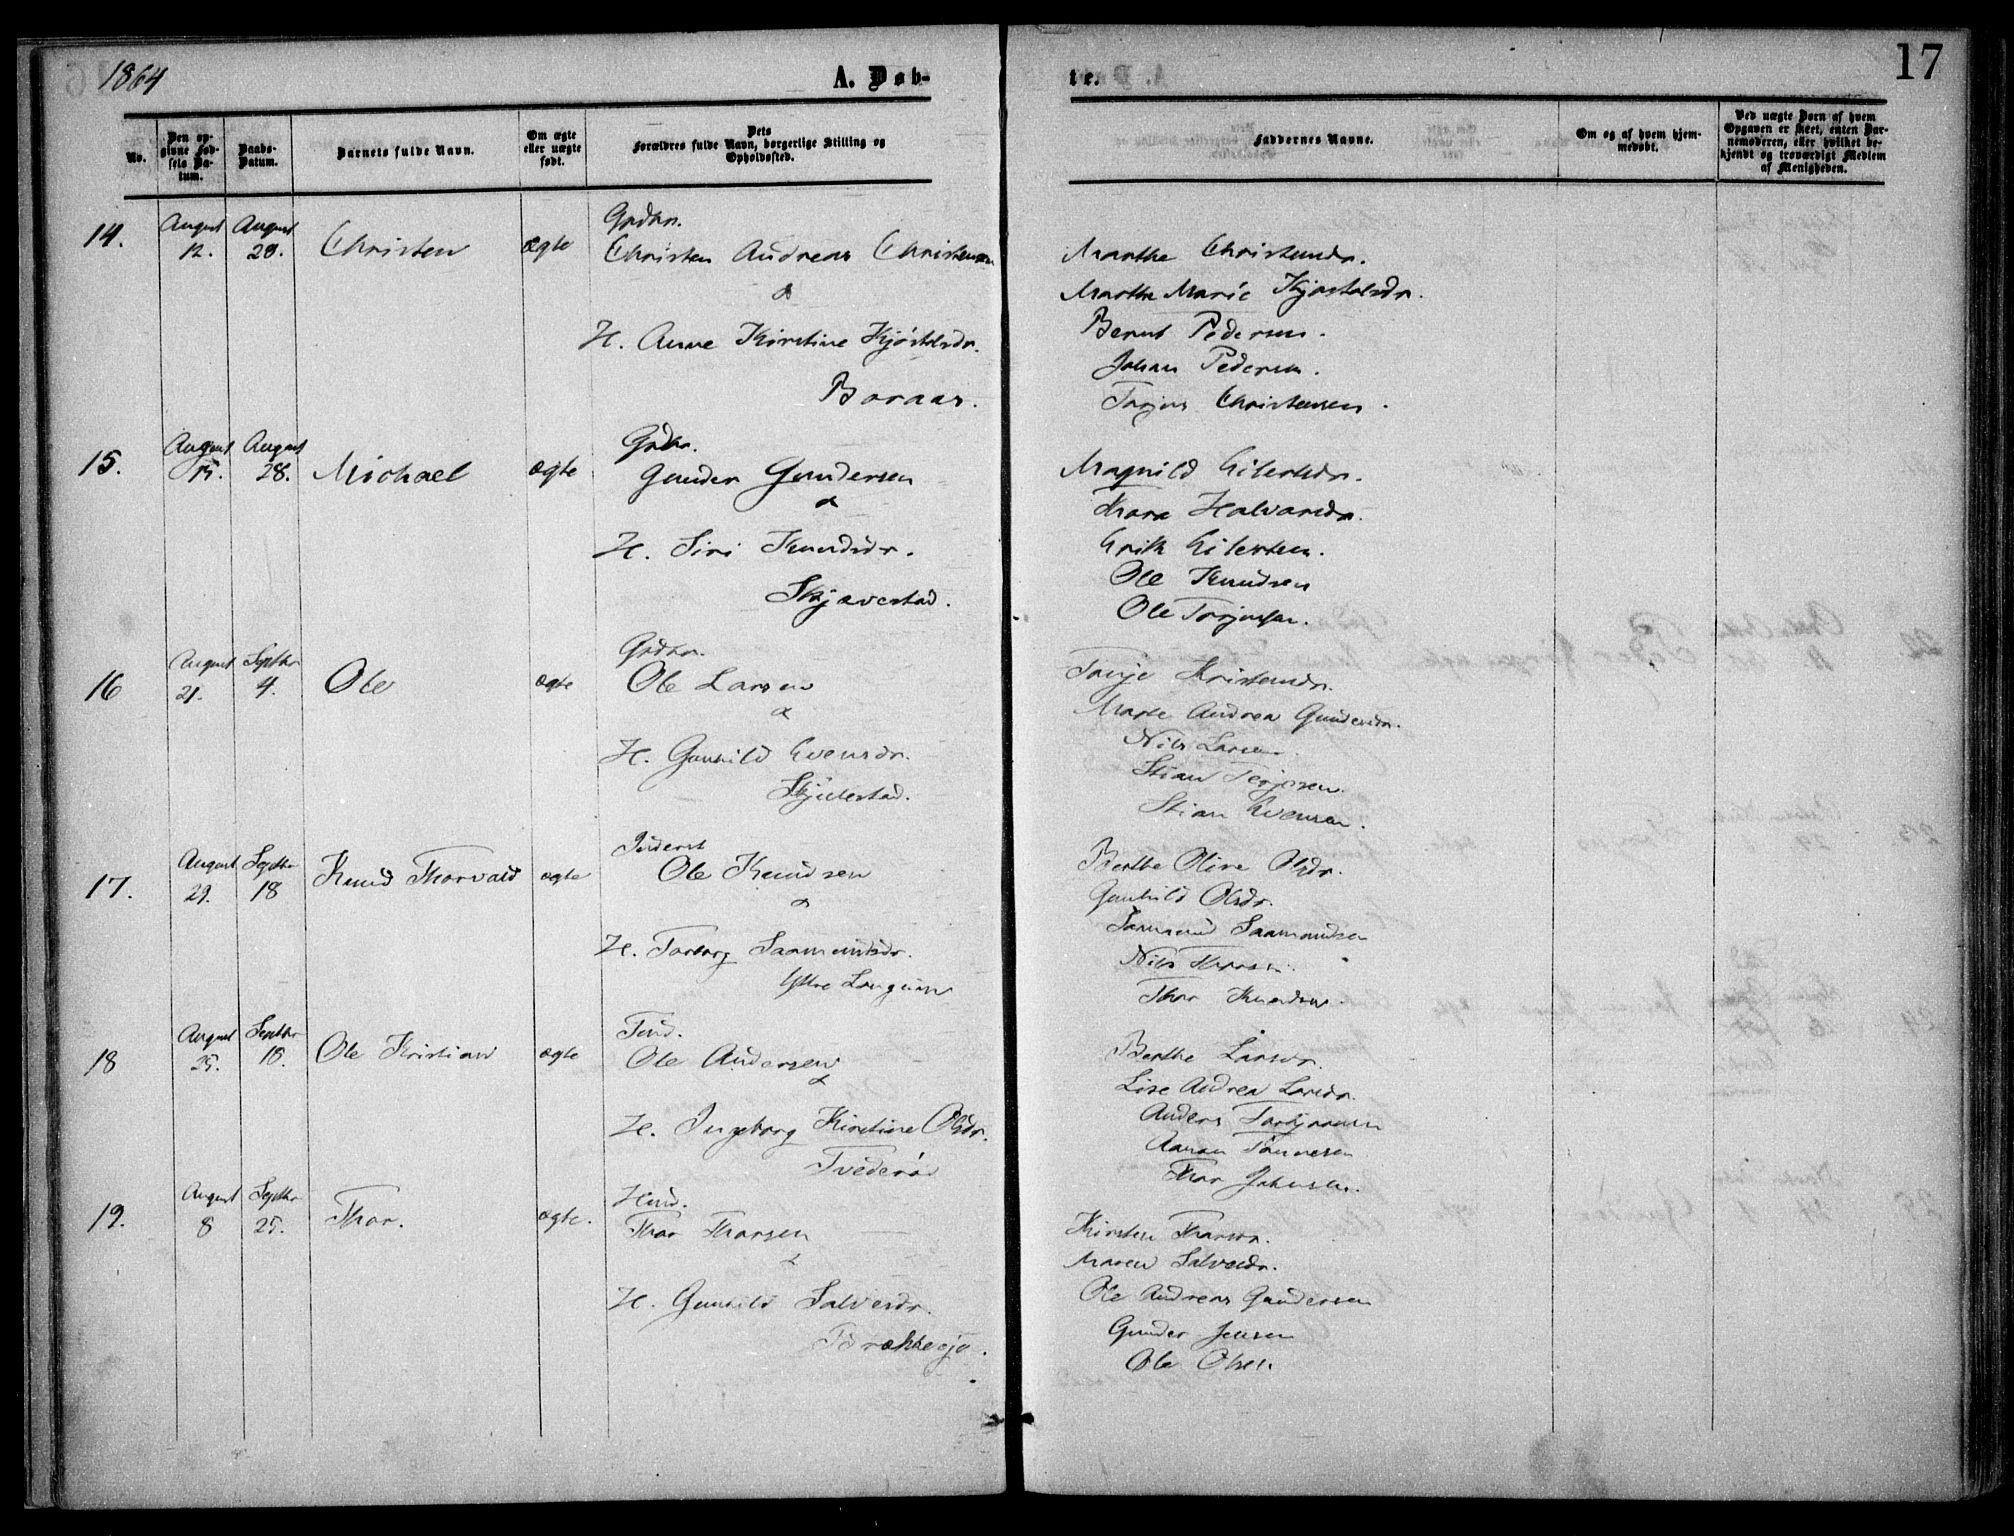 1864
A. Døb-
te.
17
No.
Den op-
givne Fød-
sels Da-
tum.
Daabs-
Datum.
Barnets fulde Navn.
Om ægte
eller uægte
født.
Dets
Forældres fulde Navn, borgerlige Stilling og
Opholdssted.
Faddernes Navne.
Om og af hvem hjem-
medøbt.
Ved uægte Børn af hvem
Opgaven er skeet, enten Bar-
nemoderen, eller hvilket be-
kjendt og troværdigt Medlem
af Menigheden.
14.
August
12.
August
28.
Christen
ægte
Grdbr.
Christen Andreas Christensen
&
H. Anne Kirstine Kjøstelsdr.
Boraas.
Marthe Christensdr.
Marthe Marie Kjøstelsdr.
Bernt Pedersen.
Johan Pedersen.
Torjus Christensen.
15.
August
15.
August
28.
Michael
ægte
Grdbr.
Gunder Gundersen
&
H. Siri Knudsdr.
Skjævestad.
Magnild Eilertsdr.
Thora Halvorsdr.
Erik Eilertsen.
Ole Knudsen
Ole Torjussen.
16
August
21.
Septbr
4.
Ole
ægte
Grdbr.
Ole Larsen
&
H. Gunhild Evensdr.
Skjulestad.
Tonje Kristensdr.
Marte Andrea Gundersdr.
Nils Larsen
Stian Terjesen.
Stian Evensen.
17.
August
29.
Septbr
18
Knud Thorvald
ægte
Inderst
Ole Knudsen
&
H. Torborg Saamundsdr.
Ytre Langum
Berthe Oline Olsdr.
Gunhild Olsdr.
Saamund Saamundsen
Nils
Thor Knudsen.
18
August
25.
Septbr
18.
Ole Kristian
ægte
Ole Andersen
&
H. Ingeborg Kirstine Olsdr.
Tvederød
Berthe Larsdr.
Lise Andrea Larsdr.
Anders
Aanon Tønnesen
Thor Johnsen.
19.
August
8
Septbr
25.
Thor.
ægte.
Husd.
Thor Thorsen
&
H. Gunhild Salvesdr.
Brækkesjø.
Kirsten Thorsdr.
Maren Salvesdr.
Ole Andreas Gundersen
Gunder Jensen
Ole Olsen